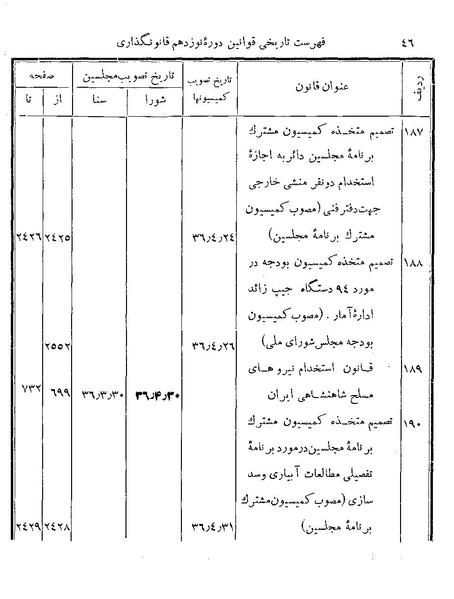 ۴۶ فهرست تاریخی قوانین دورۀ نوزدهم قانونگذاری
ردیف عنوان قانون تاریخ تصویب کمیسیونها تاریخ تصویب مجلسین صفحه
شورا سنا از تا
۱۸۷ تصمیم متخذه کمیسیون مشترك
برنامۀ مجلسین دائر به اجازۀ
استخدام دو نفر منشی خارجی
جهت دفتر فنی (مصوب کمیسیون
مشترك برنامۀ مجلسین) ۳۶٫۴٫۲۴ ۲۴۲۵ ۲۴۲۶
۱۸۸ تصمیم متخذه کمیسیون بودجه در
مورد ۹۴ دستگاه جیپ زائد
ادارۀ آمار . (مصوب کمیسیون
بودجه مجلس شورای ملی) ۳۶٫۴٫۲۶ ۲۵۵۲
۱۸۹ قانون استخدام نیروهای
مسلح شاهنشاهی ایران ۳۶٫۴٫۳۰ ۳۶٫۳٫۳۰ ۶۹۹ ۷۳۲
۱۹۰ تصمیم متخذه کمیسیون مشترك
برنامۀ مجلسین در مورد برنامۀ
تفصیلی مطالعات آبیاری و سد
سازی (مصوب کمیسیون مشترك
برنامۀ مجلسین) ۳۶٫۴٫۳۱ ۲۴۲۸ ۲۴۲۹